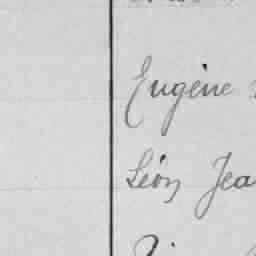 Eugène
Léon Jea